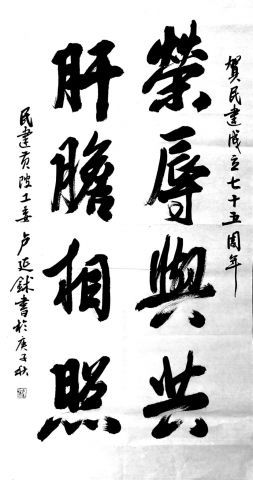 賀民建成立七十五周年
榮辱與共
肝膽相照
民建黄陂工委 卢延銶書於庚子秋